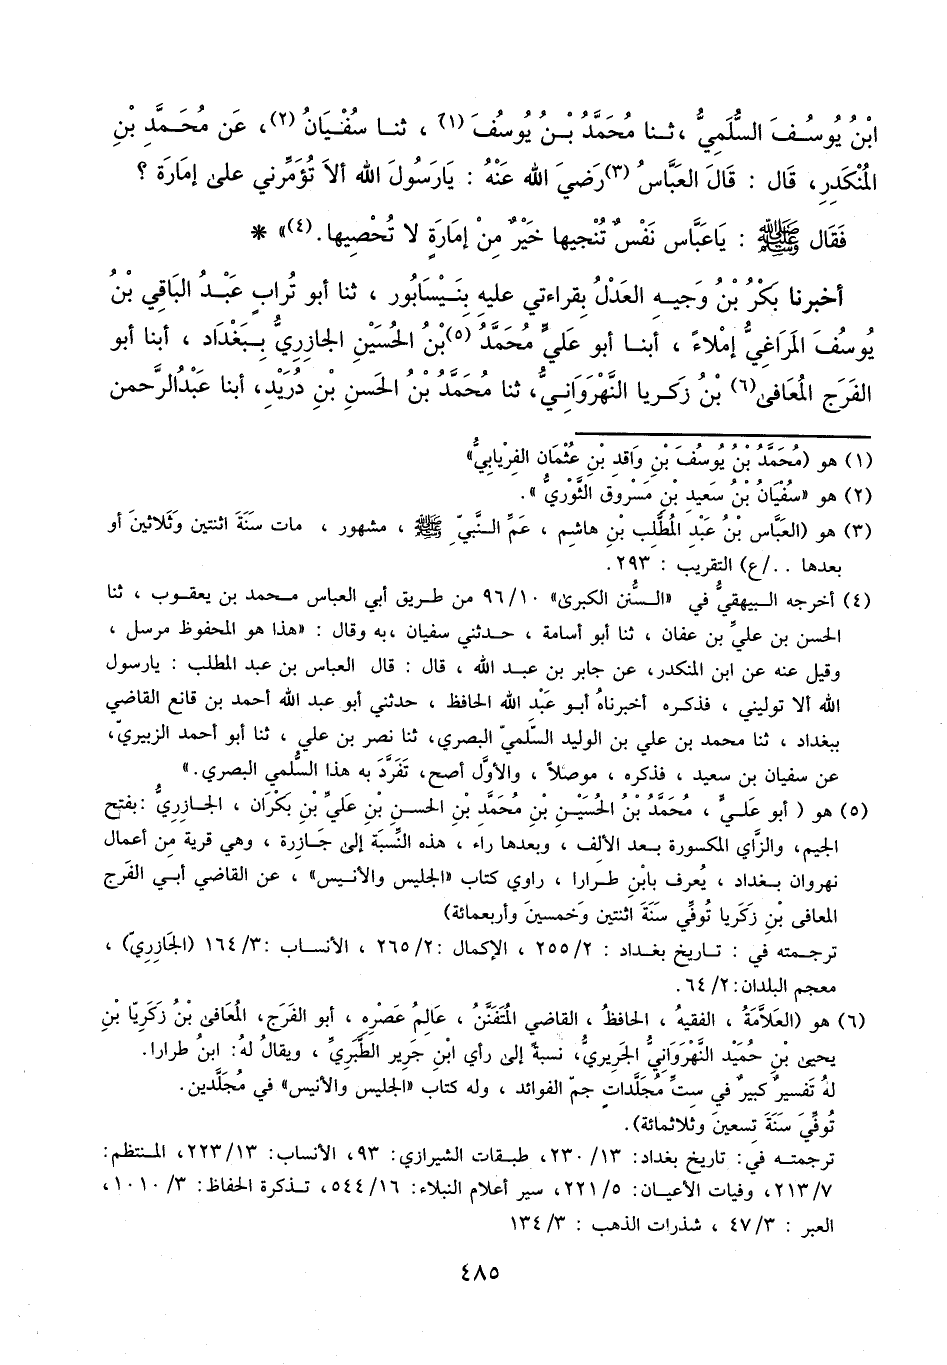 ابْنُ يُوسُفَ السُّلَمِيُّ ،ثنا مُحَمَّدُ بْنُ يُوسُفَ (١) ، ثنا سُفْيَانُ (٢)، عَن مُحَمَّدِ بْنِ
المُنْكَدِرِ، قَال : قَالَ العَبَّاسُ (٣)رَضِيَ الله عَنْهُ : يَارَسُولَ الله ألاَ تُؤَمِّرني على إمَارَة ؟
فَقَال ﷺ : يَاعَبَّاس نَفْسٌ تُنْجيها خَيْرٌ مِنْ إمَارَةٍ لا تُحْصِيها.(٤)» *
أخبرنا بَكْرُ بْنُ وَجيهِ العَدْلُ بِقراءتي عليهِ بِنَيسَابُور ، ثنا أبو تُرابٍ عَبْدُ البَاقي بْنُ
يُوسُفَ المَرَاغيُّ إمْلاءً ، أبنا أبو عَليٍّ مُحَمَّدُ (٥)بْنُ الحُسَيْنِ الجازِريُّ بِبَغْدَاد ، أبنا أبو
الفَرَج المُعَافى(٦) بْنُ زكريا النَّهْرَوَانيُّ، ثنا مُحَمَّدُ بْنُ الحَسنِ بْنِ دُرَيْدٍ، أبنا عَبْدُالرَّحمن
(١) هو (مُحَمَّدُ بْنُ يُوسُفَ بْنِ وَاقدِ بْنِ عُثْمَان الفِرْيابيُّ»
(٢) هو «سُفْيَانُ بْنُ سَعيدِ بْنِ مَسْروق الثَّوْريُّ ».
(٣) هو (العَبَّاس بْنُ عَبْدِ المُطَّلِب بْنِ هاشِم ، عَمَّ النَّبيِّ ﷺ ، مشهور ، مات سَنَةَ اثنتين وَثَلاثينَ أو
بعدها ../ع) التقريب : ٢٩٣.
(٤) أخرجه البيهقيُّ في «السُّنن الكبرىٰ» ٩٦/١٠ من طريق أبي العباس محمد بن يعقوب ، ثنا
الحسن بن عليِّ بن عفان ، ثنا أبو أسامة ، حدثني سفيان ،به وقال : «هذا هو المحفوظ مرسل ،
وقيل عنه عن ابن المنكدر، عن جابر بن عبد الله ، قال : قال العباس بن عبد المطلب : يارسول
الله ألا توليني ، فذكره أخبرناهُ أبو عَبْد الله الحافظ ، حدثني أبو عبد الله أحمد بن قانع القاضي
ببغداد ، ثنا محمد بن علي بن الوليد السلّميّ البصري، ثنا نصر بن علي ، ثنا أبو أحمد الزبيريّ،
عن سفيان بن سعيد ، فذكره ، موصلاً ، والأوَّل أصح، تَفَرَّدَ به هذا السُّلمي البصري.»
(٥) هو ( أبو عَليٍّ ، مُحَمَّدُ بْنُ الحُسَيْنِ بْنِ مُحَمَّدِ بْنِ الحسنِ بْنِ عَليِّ بْنِ بَكْرَان ، الجازِريُّ :بفتح
الجيم، والزَّاي المكسورة بعد الألف ، وبعدها راء ، هذه النِّسبَة إلىٰ جَازرة ، وهي قرية مِن أعمال
نهروان بغداد ، يُعرف بابْنِ طرارا ، راوي كتاب «الجليس والأنيس» ، عن القاضي أبي الفَرج
المعافى بْنِ زكَريا تُوفِّي سَنَةَ اثنتين وَخمسينَ وأربعمائة)
ترجمته في : تاريخ بغداد : ٢٥٥/٢ ، الإكمال :٢٦٥/٢ ، الأنساب :١٦٤/٣ (الجَازريّ) ،
معجم البلدان :٦٤/٢.
(٦) هو (العَلاَّمَةُ ، الفقيهُ ، الحافظُ ، القاضي المُتَفَنِّنُ ، عَالِمُ عَصْرِهِ ، أبو الفَرَج، المُعَافىٰ بْنُ زَكَريّا بْنِ
يحيىٰ بْنِ حُمَيْد النَّهْرَوَانيُّ الجَريريُّ، نسبةً إلىٰ رأي ابْنِ جَرير الطَّبَريِّ ، ويقالُ لهُ: ابنُ طرارا.
لهُ تَفسيرٌ كبيرٌ في ستِّ مُجَلَّدات جمّ الفوائد ، وله كتاب «الجليس والأنيس» في مُجَلَّدين.
تُوفِّيَ سَنَةَ تسعينَ وثلاثمائة).
ترجمته في: تاريخ بغداد: ٢٣٠/١٣، طبقات الشيرازي: ٩٣، الأنساب: ٢٢٣/١٣، المنتظم:
٢١٣/٧، وفيات الأعيان: ٢٢١/٥، سير أعلام النبلاء: ٥٤٤/١٦، تذكرة الحفاظ: ١٠١٠/٣،
العبر : ٤٧/٣ ، شذرات الذهب : ١٣٤/٣
٤٨٥